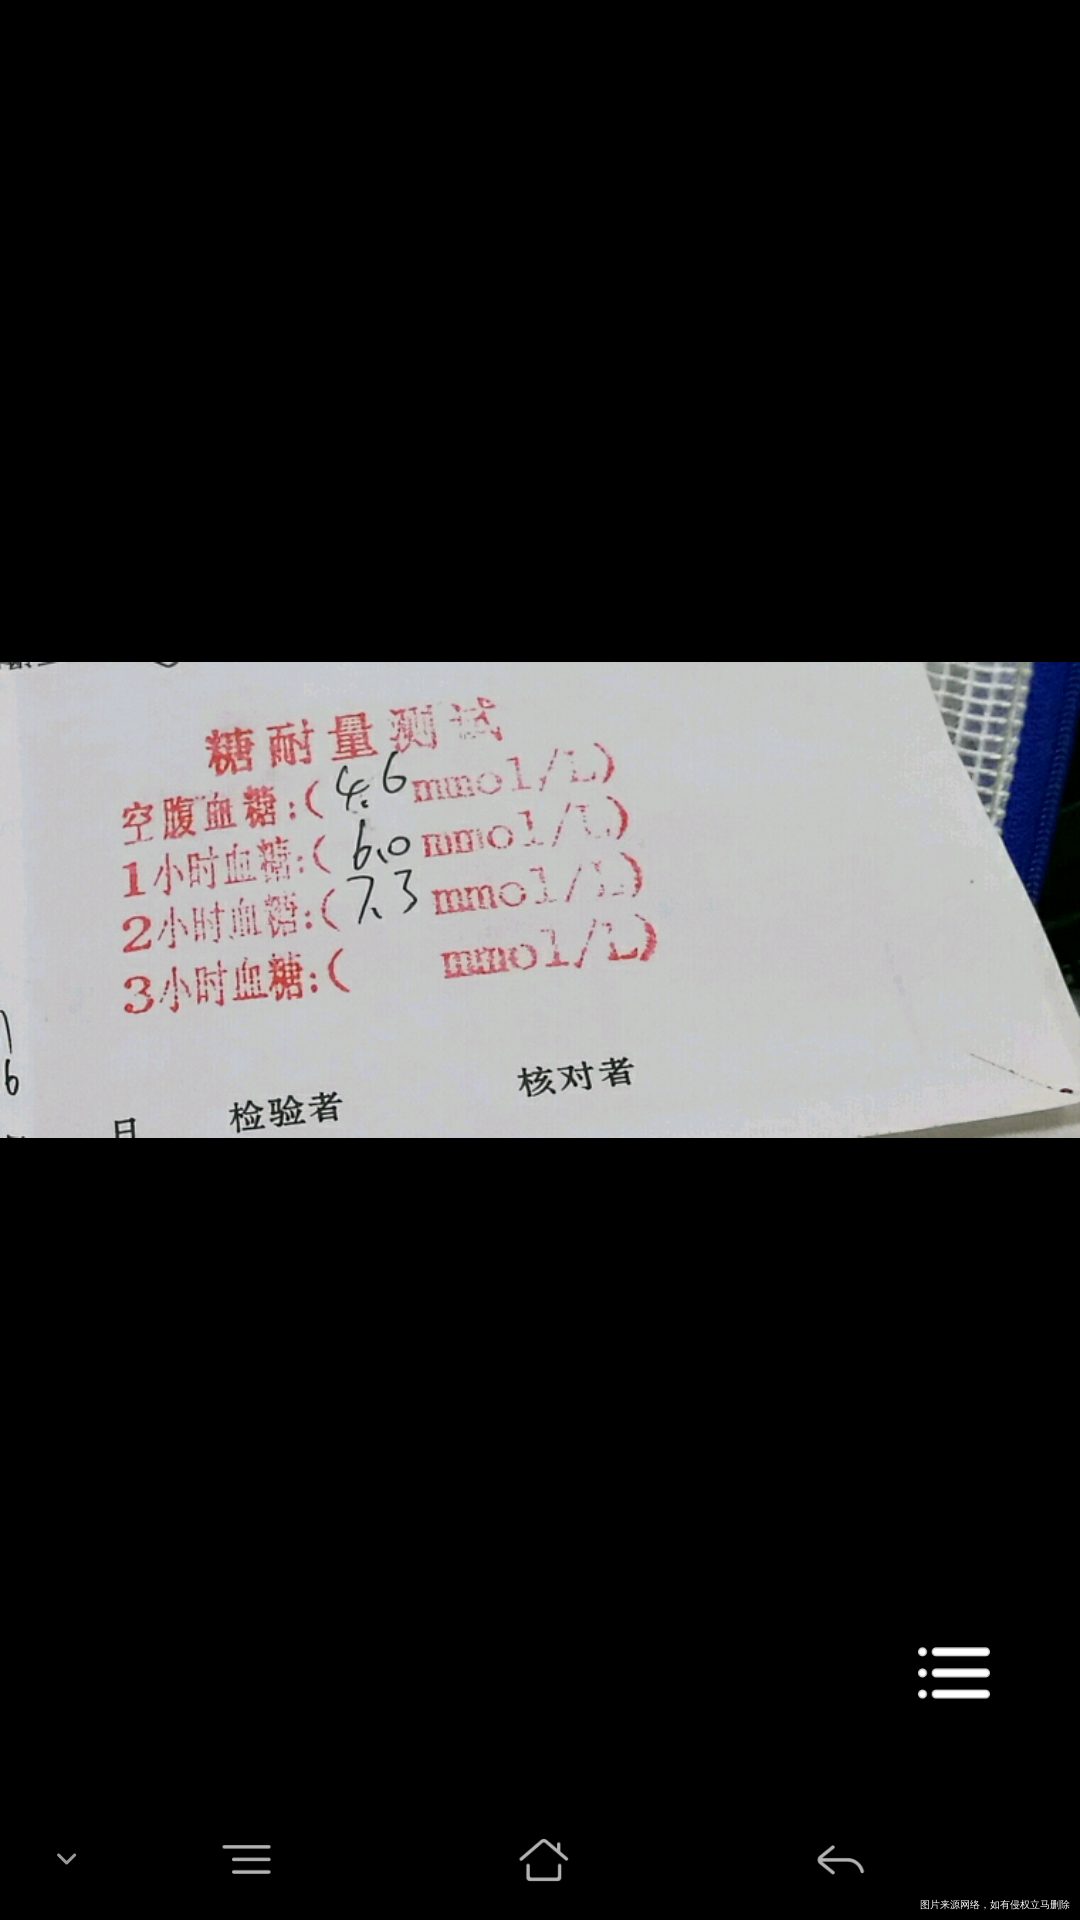 糖耐量测试
空腹血糖:(4.6mmol/L)
1小时血糖:(6.0mmol/L)
2小时血糖:(7.3mmol/L)
3小时血糖:( mmol/L)
6
检验者 核对者
日
图片来源网络，如有侵权立马删除